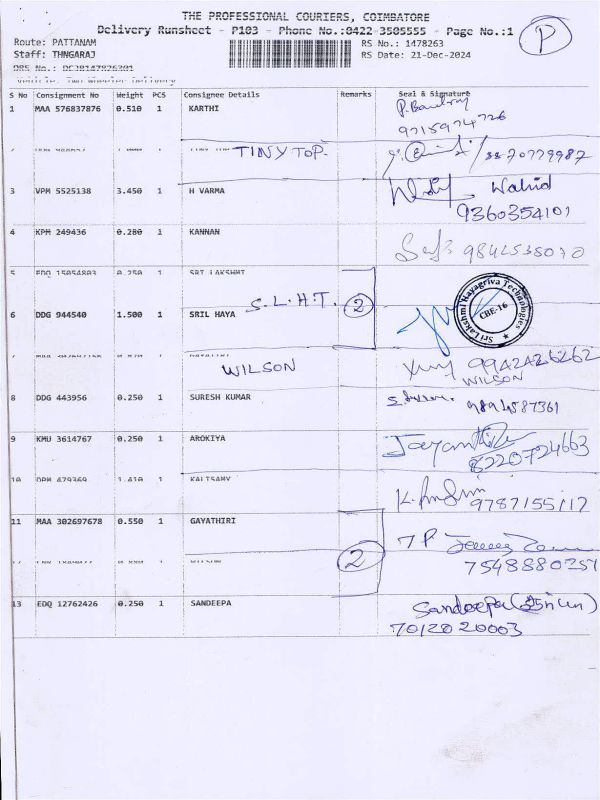 THE PROFESSIONAL COURIERS, COIMBATORE
Delivery Runsheet - P103 - Phone No.:0422-3505555 - Page No.:1
P
Route: PATTANAM
RS No.: 1478263
Staff: THNGARAJ
RS Date: 21-Dec-2024
DRS No.: DCJB147826301
Vehicle: Two Wheeler Delivery
S No Consignment No Weight PCS Consignee Details Remarks Seal & Signature
1 MAA 576837876 0.510 1 KARTHI
9715974726
TINY TOP.
3 VPM 5525138 3.450 1 H VARMA Wahid
9360354101
4 KPM 249436 0.280 1 KANNAN
5 EDQ 15054803 0.250 1 SRI LAKSHMI
S.L.H.T. 2
6 DDG 944540 1.500 1 SRIL HAYA
Sri Lakshmi Hayagriva Technologies
CBE-16
WILSON 9942426262
WILSON
8 DDG 443956 0.250 1 SURESH KUMAR
9894587361
9 KMU 3614767 0.250 1 AROKIYA
8220724663
10 DPM 479369 1.410 1 KALISAMY
9787155117
11 MAA 302697678 0.550 1 GAYATHIRI
2
7548880251
13 EDQ 12762426 0.250 1 SANDEEPA Sandeepa
7012020003